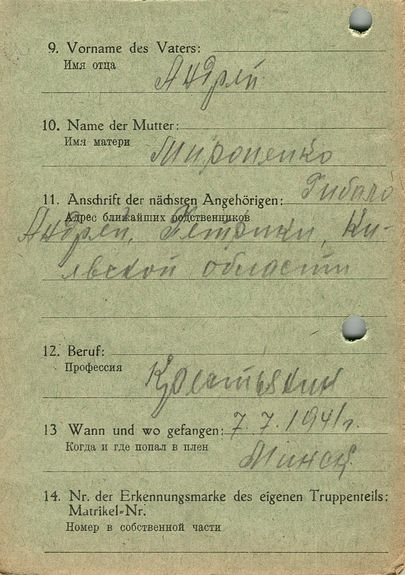 9. Vorname des Vaters:
Имя отца
Андрей
10. Name der Mutter:
Имя матери
Мироненко
11. Anschrift der nächsten Angehörigen:
Адрес ближайших родственников
Андрей, Ки-
евской области
12. Beruf:
Профессия
Крестьянин
13 Wann und wo gefangen: 7.7.1941г.
Когда и где попал в плен
Минск
14. Nr. der Erkennungsmarke des eigenen Truppenteils:
Matrikel-Nr.
Номер в собственной части